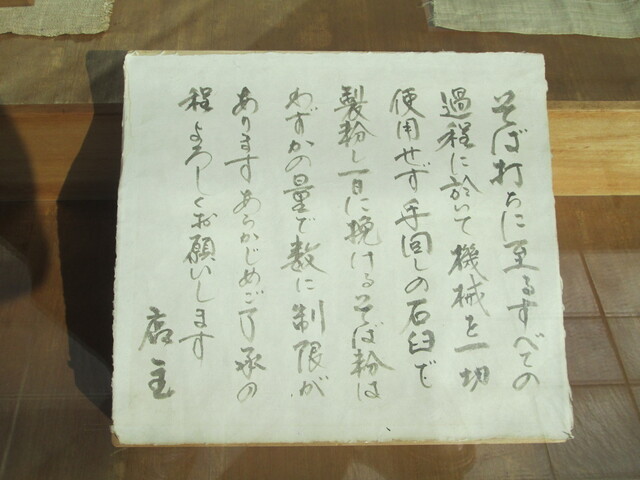 そば打ちに至るすべての
過程に於いて機械を一切
使用せず手回しの石臼で
製粉し一日に挽けるそば粉は
わずかの量で数に制限が
ありますあらかじめご了承の
程よろしくお願いします
店主